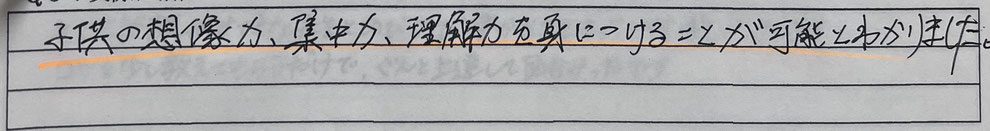 子供の想像力、集中力、理解力を身につけることが可能とわかりました。